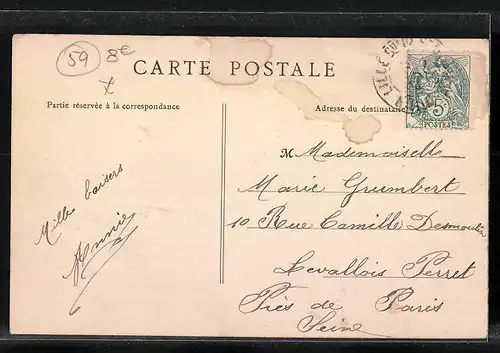 59 8€
CARTE POSTALE
Partie réservée à la correspondance
Adresse du destinataire
LILLE
5c
POSTES
Mille baisers
Annie
M. Mademoiselle
Marie Grumbert
10 Rue Camille Desmoulin
Levallois Perret
Près de Paris
Seine